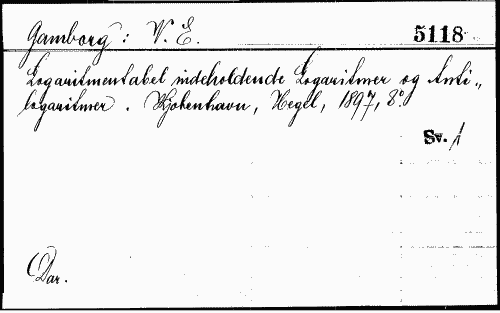 Gamborg: V. E. 5118
Logaritmentabel indeholdende Logaritmer og Anti-
logaritmer. Kjøbenhavn, Hegel, 1897, 8º.
Sv. 1
(Dar.